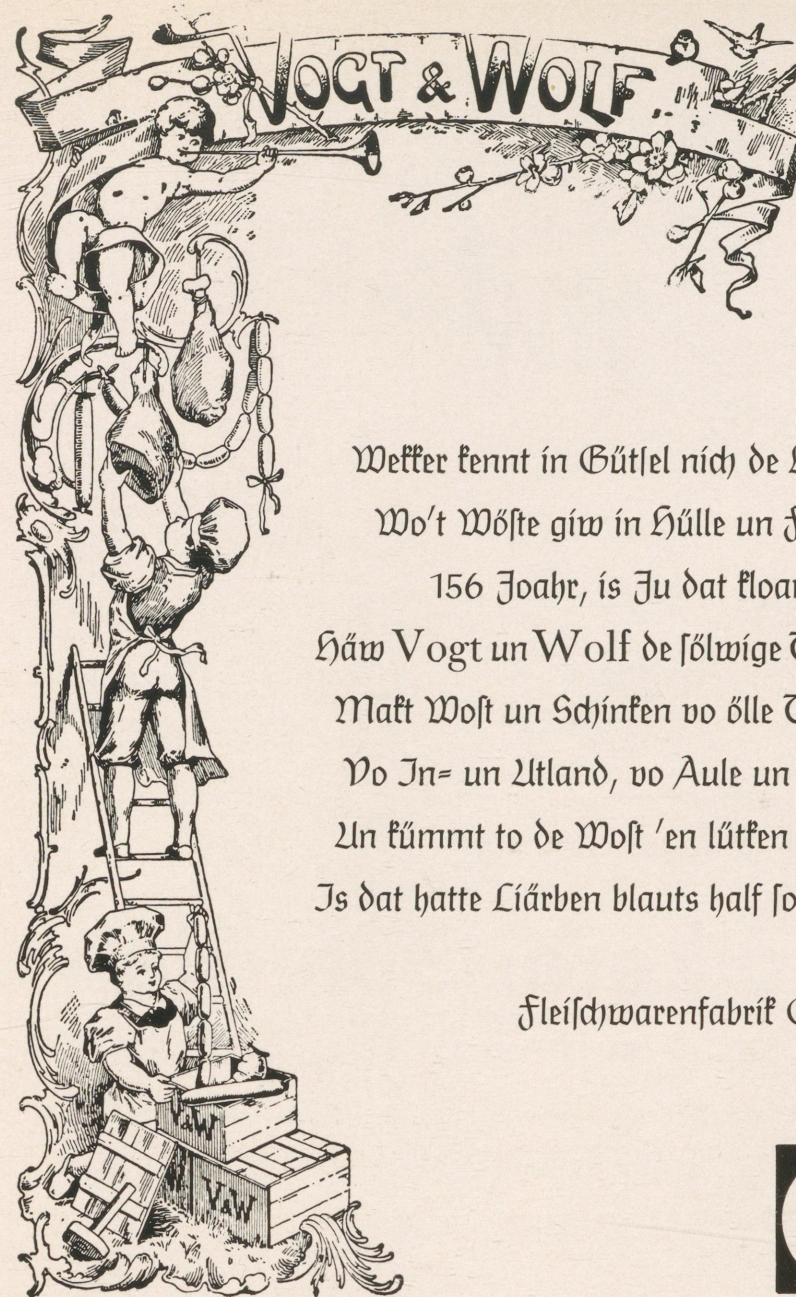 VOGT & WOLF
Wekker kennt in Gütsel nich de
Wo't Wöste giw in Hülle un
156 Joahr, is Ju dat kloar
Häw Vogt un Wolf de sölwige
Makt Wost un Schinken vo ölle
Vo In- un Utland, vo Aule un
Un kümmt to de Wost 'en lütken
Is dat hatte Liärben blauts half so
Fleischwarenfabrik
V&W
V&W